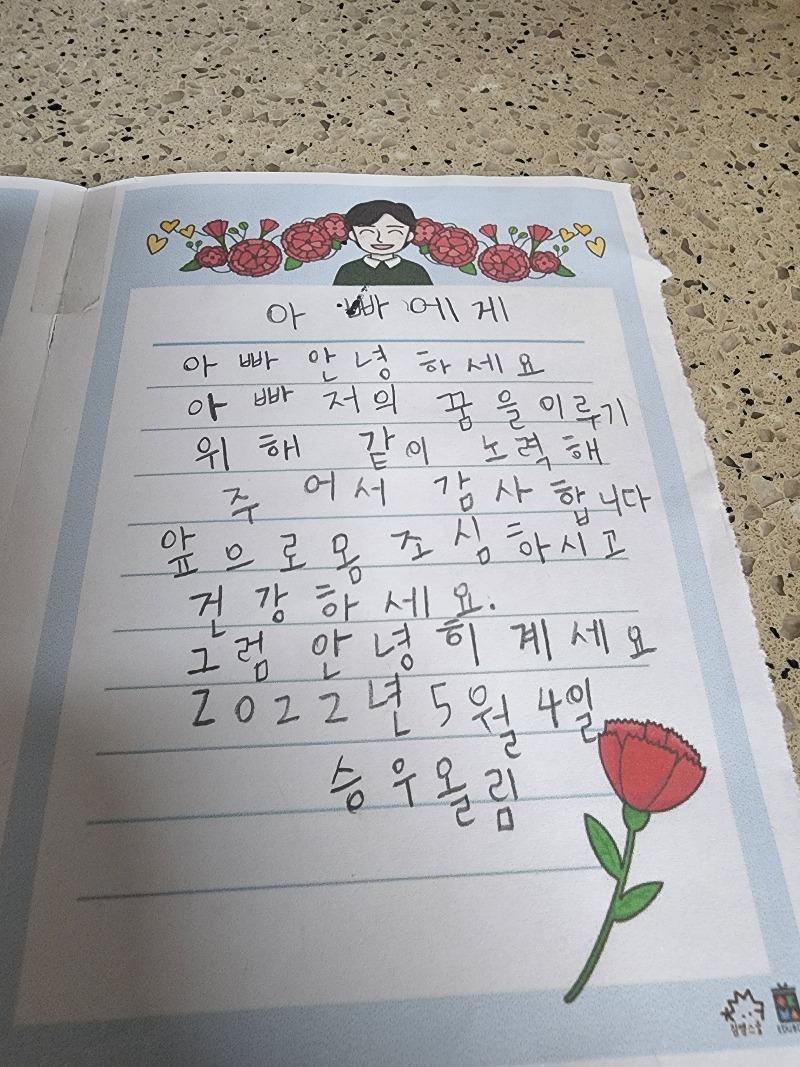 아빠에게
아빠 안녕하세요
아빠 저의 꿈을 이루기
위해 같이 노력해
주어서 감사합니다
앞으로 몸조심하시고
건강하세요.
그럼 안녕히 계세요
2022년 5월 4일
승우올림